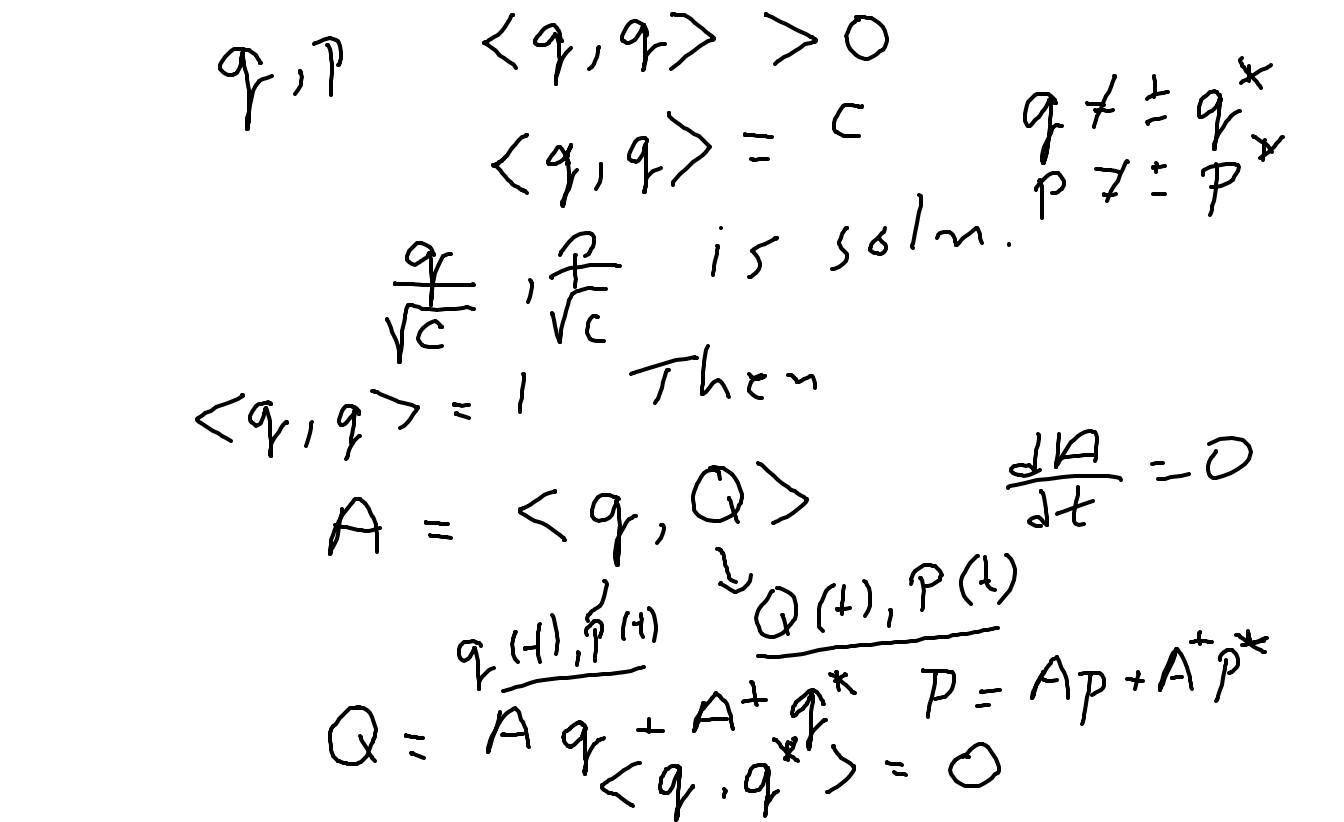 q, p <q, q> > 0
<q, q> = c q ≠ ± q*
p ≠ ± p*
q/√c , p/√c is soln.
<q, q> = 1 Then
A = <q, Q> dA/dt = 0
q(t), p(t) Q(t), P(t)
Q = A q + A⁺ q* P = Ap + A⁺p*
<q, q*> = 0